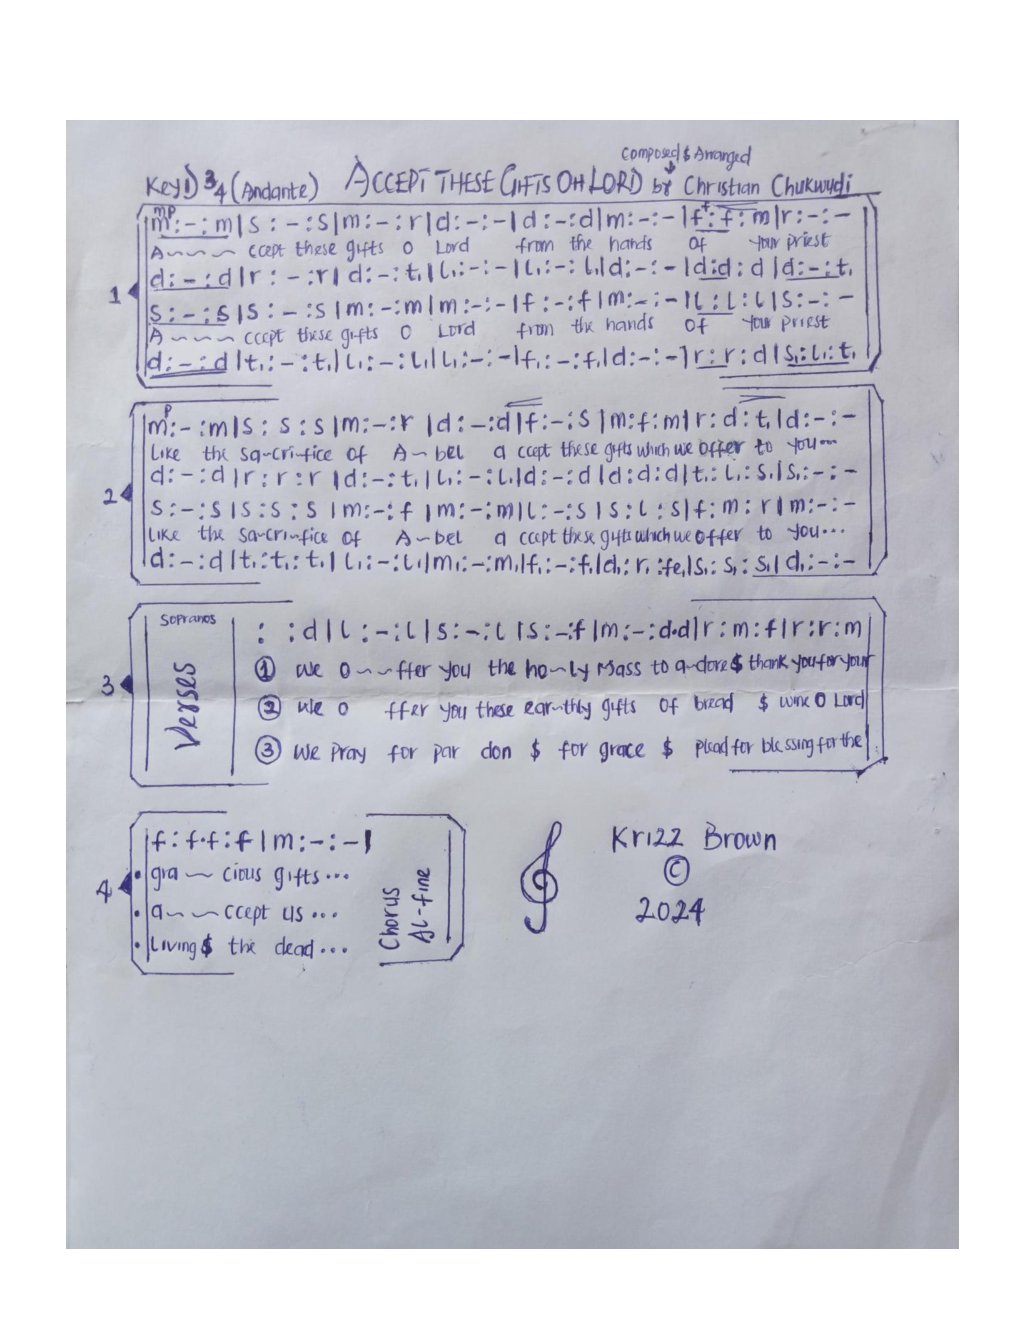 Composed & Arranged
Key D 3/4 (Andante) ACCEPT THESE GIFTS OH LORD by Christian Chukwudi
mp
|m:-:m|s:-:s|m:-:r|d:-:-|d:-:d|m:-:-|f:f:m|r:-:-
A~~~ccept these gifts O Lord from the hands of your priest
d:-:d|r:-:r|d:-:t₁|l₁:-:-|l₁:-:l₁|d:-:-|d:d:d|d:-:t₁
1
s:-:s|s:-:s|m:-:m|m:-:-|f:-:f|m:-:-|l:l:l|s:-:-
A~~~~ccept these gifts O Lord from the hands of your priest
d:-:d|t₁:-:t₁|l₁:-:l₁|l₁:-:-|f₁:-:f₁|d:-:-|r:r:d|s₁:l₁:t₁
p
|m:-:m|s:s:s|m:-:r|d:-:d|f:-:s|m:f:m|r:d:t₁|d:-:-
Like the sa~cri~fice of A~bel a ccept these gifts which we offer to you...
d:-:d|r:r:r|d:-:t₁|l₁:-:l₁|d:-:d|d:d:d|t₁:l₁:s₁|s₁:-:-
2
s:-:s|s:s:s|m:-:f|m:-:m|l:-:s|s:l:s|f:m:r|m:-:-
Like the sa~cri~fice of A~bel a ccept these gifts which we offer to you...
d:-:d|t₁:t₁:t₁|l₁:-:l₁|m₁:-:m₁|f₁:-:f₁|d₁:r₁:fe₁|s₁:s₁:s₁|d₁:-:-
Sopranos
: :d|l:-:l|s:-:l|s:-:f|m:-:d.d|r:m:f|r:r:m
3
Verses
① We O~~ffer you the ho~ly Mass to a~dore & thank you for your
② We o ffer you these ear~thly gifts of bread & wine O Lord
③ We pray for par don & for grace & plead for blessing for the
|f:f.f:f|m:-:-|
4
• gra~cious gifts...
• a~~ccept us...
• Living & the dead...
Chorus
Al-fine
Krizz Brown
©
2024